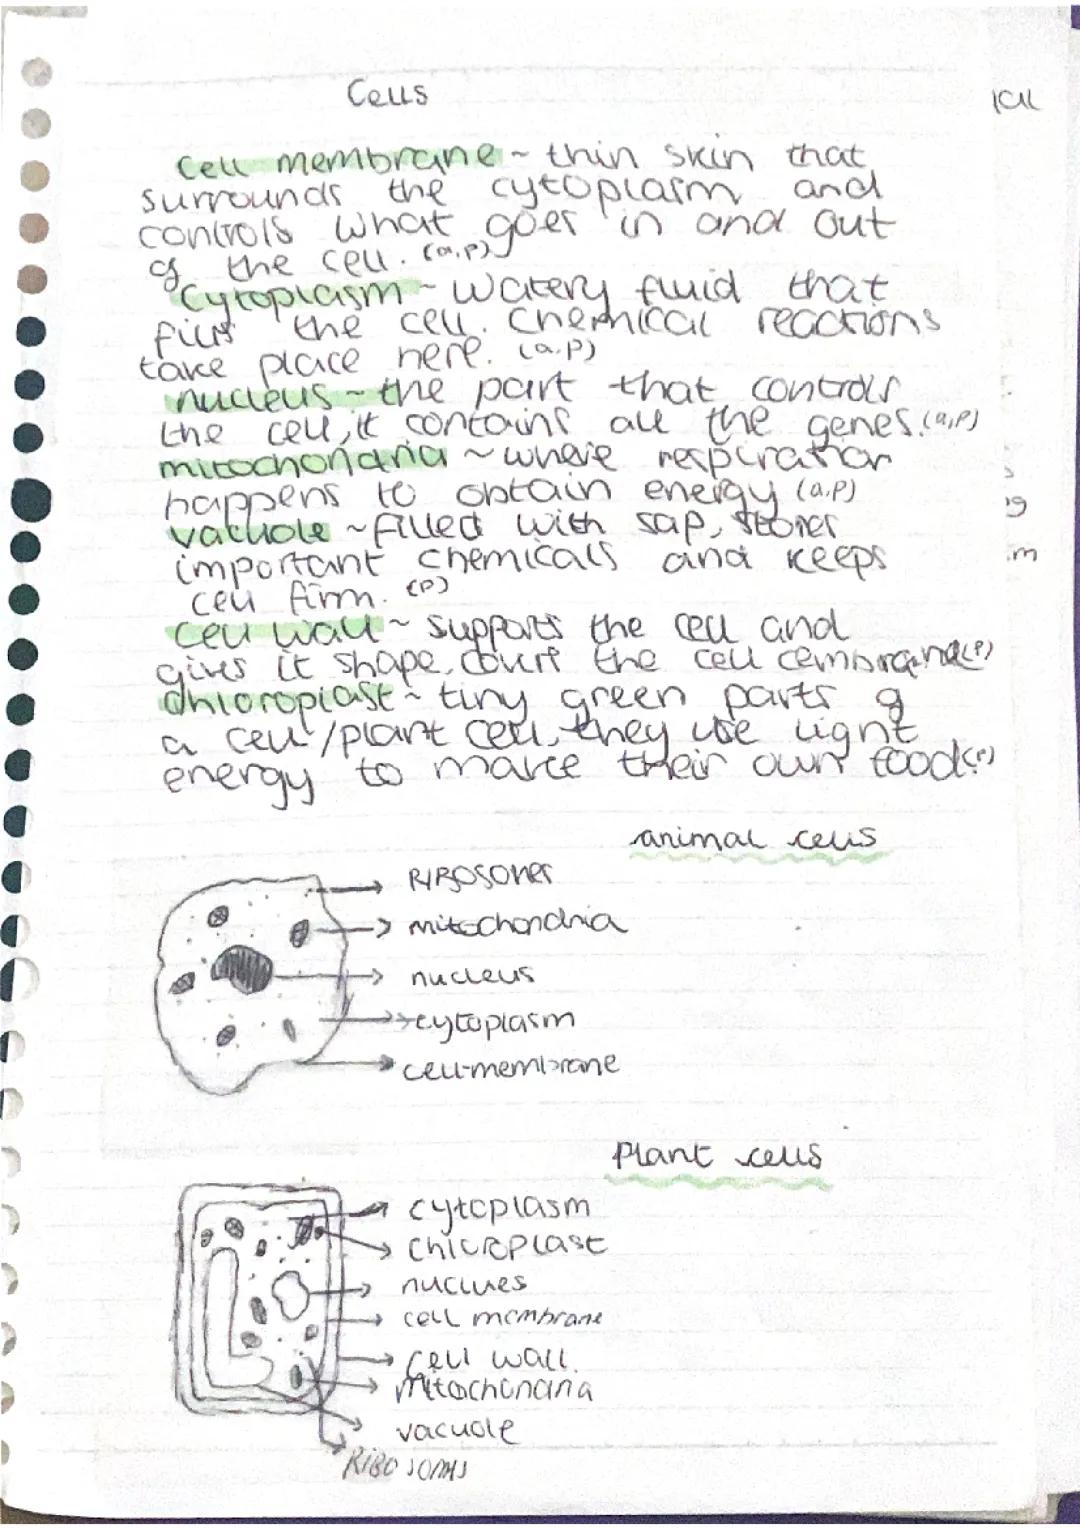 Cells
Cell membrane ~ thin skin that
surrounds the cytoplasm and
controls what goes in and out
of the cell. (a,p)
Cytoplasm ~ watery fluid that
fills the cell. Chemical reactions
take place here. (a.p)
nucleus ~ the part that controls
the cell, it contains all the genes. (a,p)
mitochondria ~ where respiration
happens to obtain energy (a.p)
vacuole ~ filled with sap, stores
important chemicals and keeps
cell firm. (P)
cell wall ~ supports the cell and
gives it shape, the cell cembrane (P)
chloroplast ~ tiny green parts of
a cell/plant cell, they use light
energy to make their own food (P)
animal cells
RIBOSOMES
mitochondria
nucleus
cytoplasm
cell-membrane
Plant cells
cytoplasm
chloroplast
nuclues
cell membrane
cell wall.
Mitochondria
vacuole
RIBOSOMES